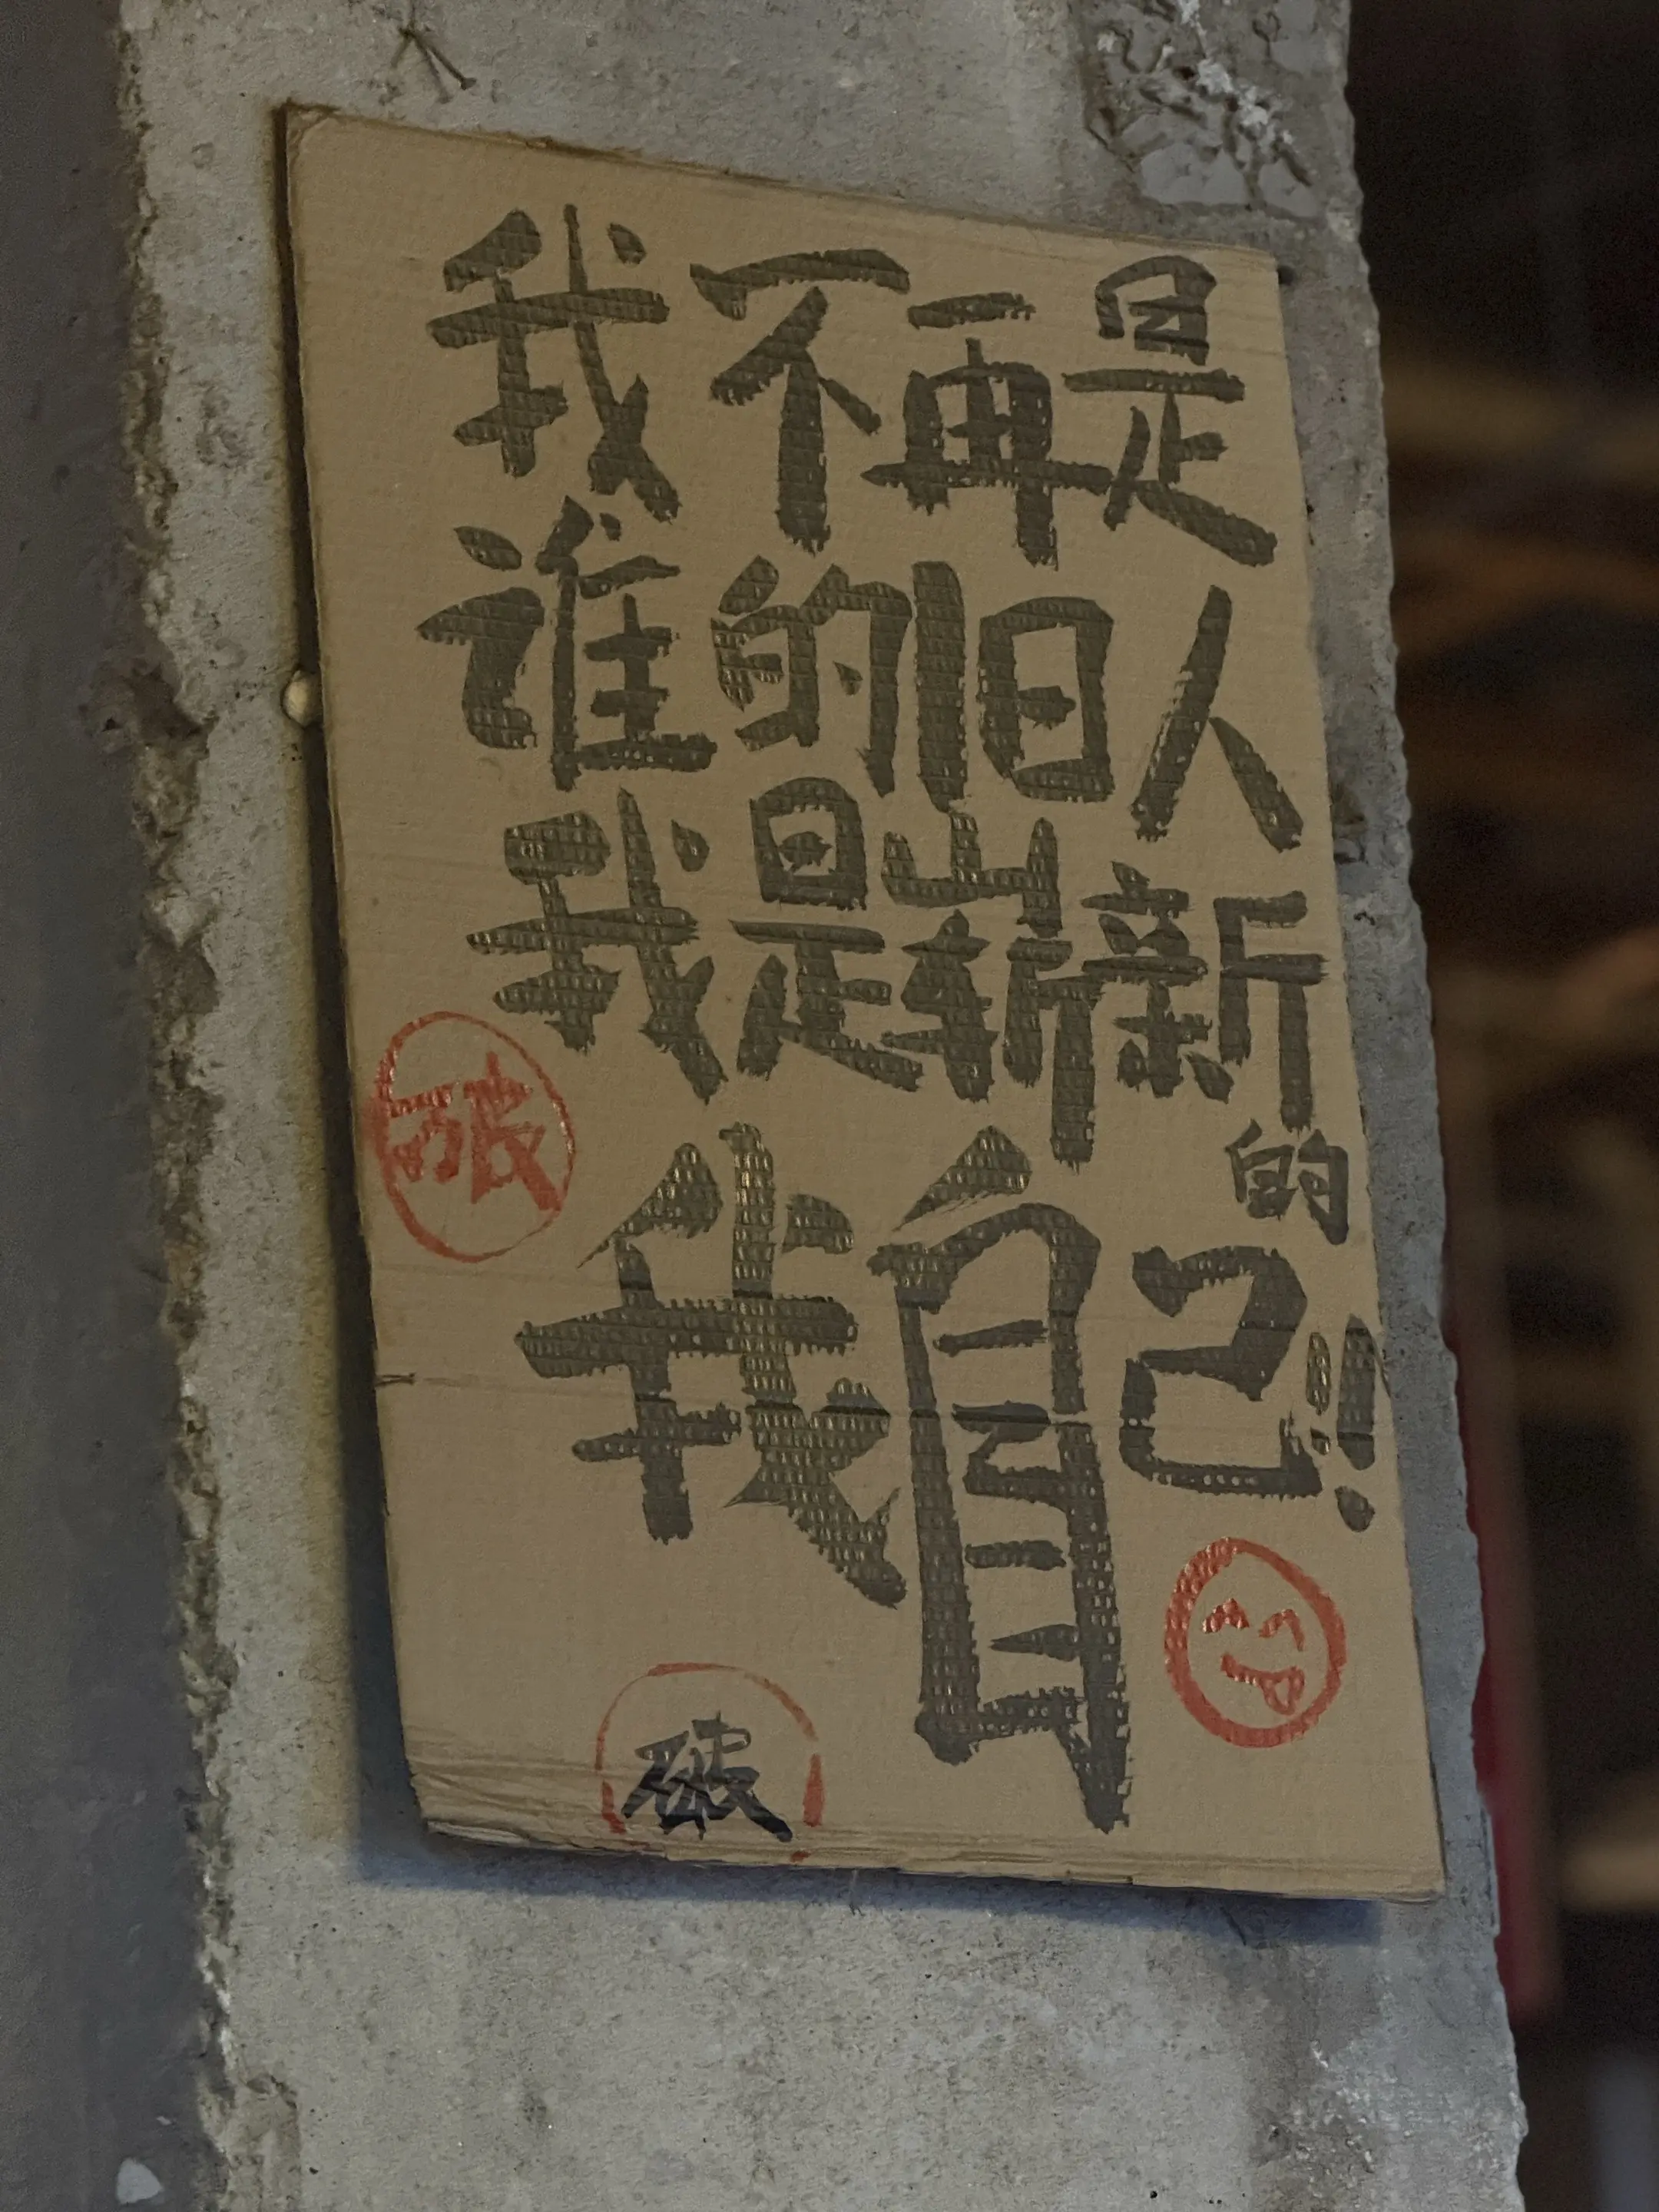 我不再是
谁的旧人
我是崭新
的
我自己!!
破
破